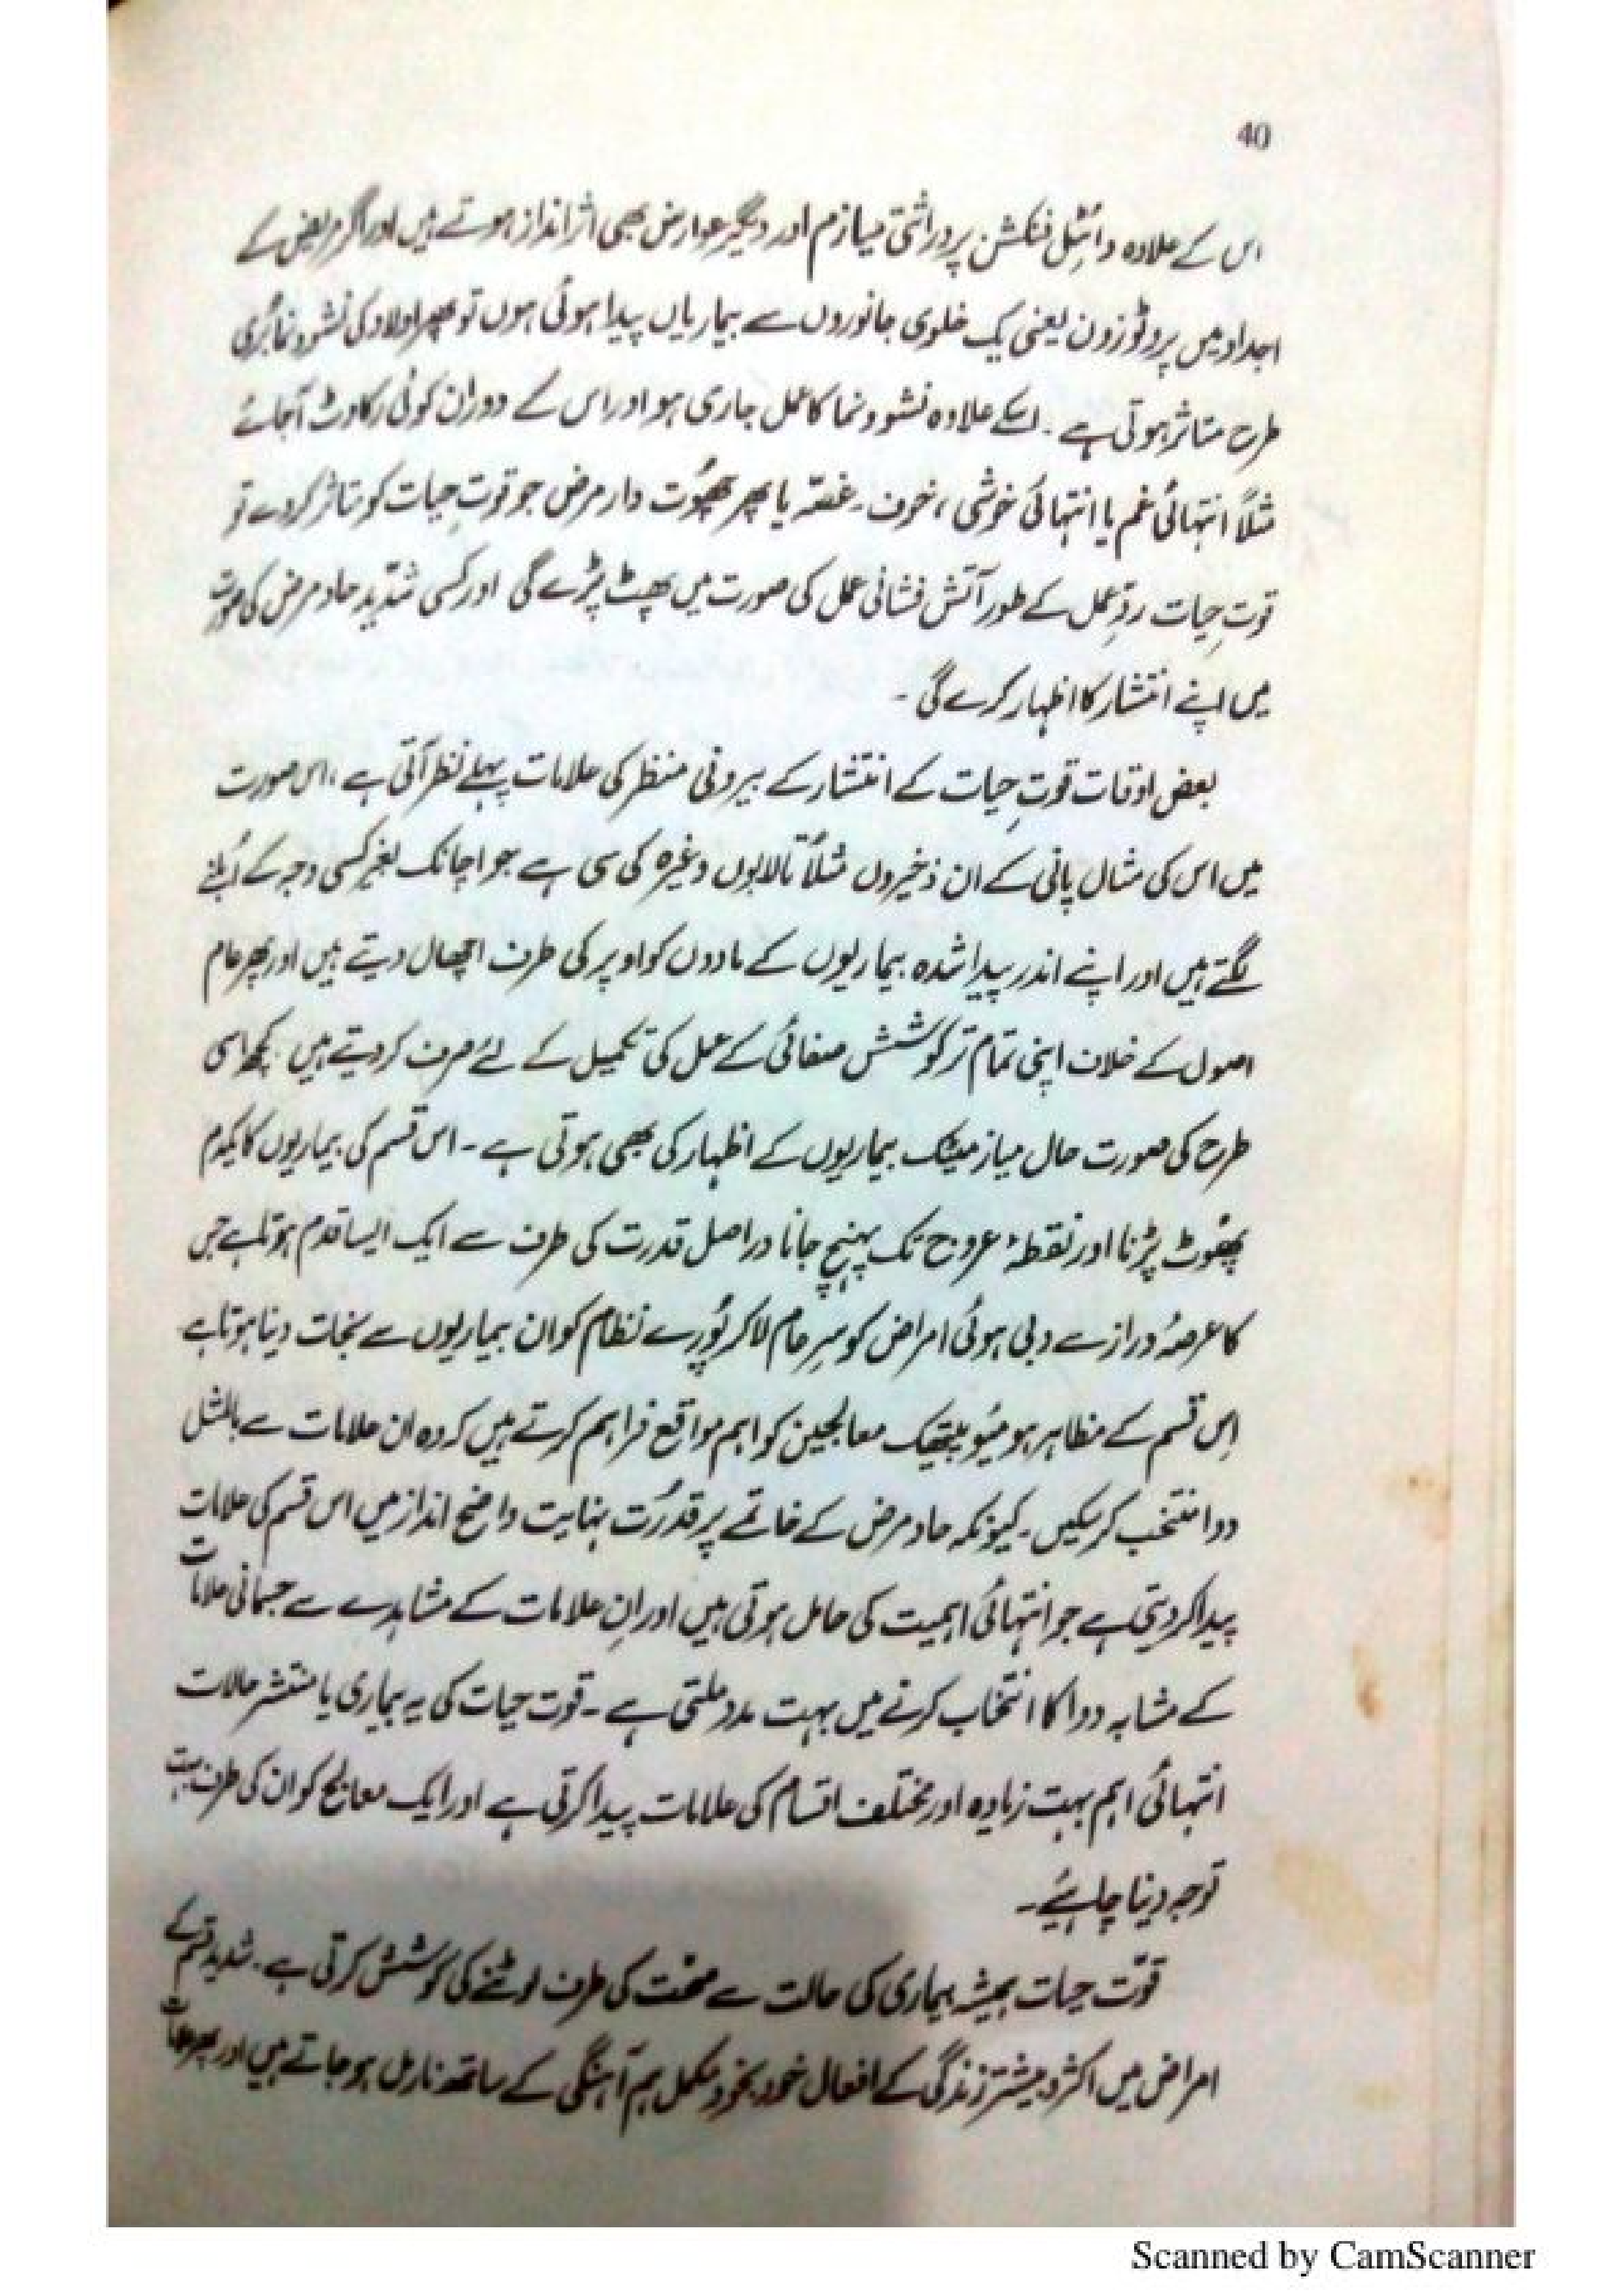 40
اس کے علاوہ وائٹل فنکشن پر وراثتی میازم اور دیگر عوارض بھی اثر انداز ہوتے ہیں اور اگر مریض کے
اجداد میں پروٹوزون یعنی یک خلوی جانوروں سے بیماریاں پیدا ہوئی ہوں تو پھر اولاد کی نشوونما بُری
طرح متاثر ہوتی ہے ۔ اسکے علاوہ نشوونما کا عمل جاری ہو اور اس کے دوران کوئی رکاوٹ آجائے
مثلاً انتہائی غم یا انتہائی خوشی ، خوف ۔ غصّہ یا پھر چھُوت دار مرض جو قوتِ حیات کو متاثر کر دے تو
قوتِ حیات ردِّ عمل کے طور آتش فشانی عمل کی صورت میں پھٹ پڑے گی اور کسی شدید حاد مرض کی صورت
میں اپنے انتشار کا اظہار کرے گی ۔
بعض اوقات قوتِ حیات کے انتشار کے بیرونی منظر کی علامات پہلے نظر آتی ہے ، اس صورت
میں اس کی مثال پانی کے ان ذخیروں مثلاً تالابوں وغیرہ کی سی ہے جو اچانک بغیر کسی وجہ کے اُبلنے
لگتے ہیں اور اپنے اندر پیدا شدہ بیماریوں کے مادوں کو اوپر کی طرف اچھال دیتے ہیں اور پھر عام
اصول کے خلاف اپنی تمام تر کوشش صفائی کے عمل کی تکمیل کے لئے صرف کر دیتے ہیں ۔ کچھ اسی
طرح کی صورت حال میازمیٹک بیماریوں کے اظہار کی بھی ہوتی ہے ۔ اس قسم کی بیماریوں کا یکدم
پھُوٹ پڑنا اور نقطۂ عروج تک پہنچ جانا دراصل قدرت کی طرف سے ایک ایسا قدم ہوتا ہے جس
کا عرصۂ دراز سے دبی ہوئی امراض کو سرِ عام لا کر پُورے نظام کو ان بیماریوں سے نجات دینا ہوتا ہے
اِس قسم کے مظاہر ہومیُوپیتھک معالجین کو اہم مواقع فراہم کرتے ہیں کہ وہ ان علامات سے بالمثل
دوا منتخب کر سکیں ۔ کیونکہ حاد مرض کے خاتمے پر قدرت نہایت واضح انداز میں اس قسم کی علامات
پیدا کر دیتی ہے جو انتہائی اہمیت کی حامل ہوتی ہیں اور اِن علامات کے مشاہدے سے جسمانی علامات
کے مشابہ دوا کا انتخاب کرنے میں بہت مدد ملتی ہے ۔ قوت حیات کی یہ بیماری یا منتشر حالات
انتہائی اہم بہت زیادہ اور مختلف اقسام کی علامات پیدا کرتی ہے اور ایک معالج کو ان کی طرف بہت
توجہ دینا چاہیئے ۔
قوّت حیات ہمیشہ بیماری کی حالت سے صحّت کی طرف لوٹنے کی کوشش کرتی ہے ۔ شدید قسم کے
امراض میں اکثر و بیشتر زندگی کے افعال خود بخود مکمل ہم آہنگی کے ساتھ نارمل ہو جاتے ہیں اور پھر علامات
Scanned by CamScanner